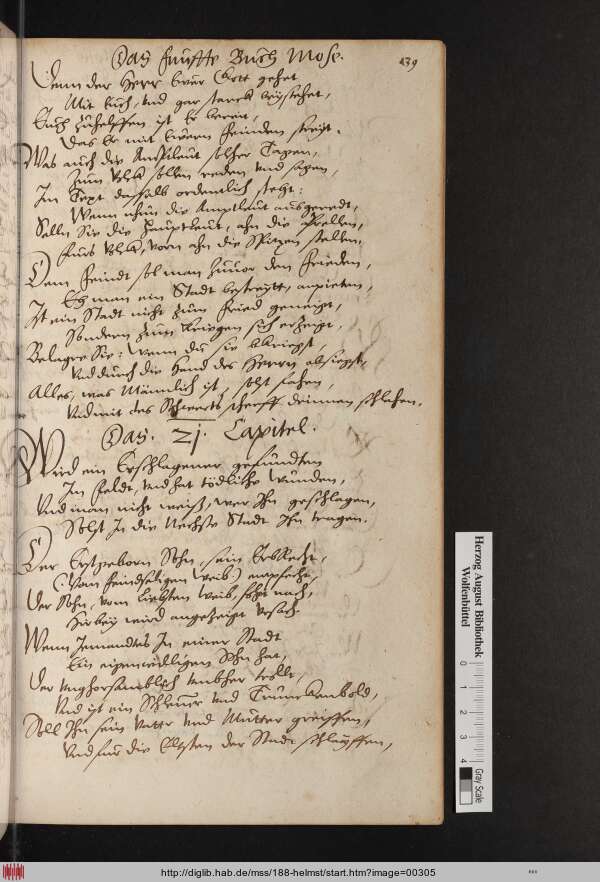 Das fünffte Buch Mose. 139
Denn der Herr Ewer Gott gehet
Mit Euch, vnd gar starck beystehet,
Euch zuhelffen ist Er bereit,
Das Er mit Ewern feinden streyt.
Was auch die Amptleut solcher Tagen,
Zum Volck sollen reden vnd sagen,
Im Text desfalls ordentlich steht:
Wenn nhun die Amptleut ausgeredt,
Sollen Sie die Hauptleut, ahn die stellen,
fürs Volck, vorn ahn die Spitzen stellen.
Dem feindt sol man zuuor den frieden,
Eh man ein Stadt bestreytt, anpieten,
Ist ein Stadt nicht zum fried geneigt,
Sondern zum kriegen sich erzeigt,
Belagre Sie: Wenn du sie bkriegst,
Vnd durch die Hand des Herrn obsiegst,
Alles, was Männlich ist, solst fahen,
Vnd mit des Schwerts scherff drinnen schlahen.
Das. 21. Capitel.
Wird ein Erschlagener gefunden
Im feldt, vnd hat tödliche Wunden,
Vnd man nicht weiß, wer Ihn geschlagen,
Solst In die Nechste Stadt Ihn tragen.
Der Erstgeborn Sohn, sein ErbRecht,
(Vom feindseligen Weib) empfecht,
Der Sohn, vom liebsten Weib, folgt nach,
Hirbey wird angezeigt Vrsach.
Wenn Jemandts In einer Stadt
Ein eigenwilligen Sohn hat,
Der vnghorsamblich vmbher trollt,
Vnd ist ein Schlemmer vnd Trunckenbold,
Soll Ihn sein Vatter vnd Mutter greiffen,
Vnd für die Elsten der Stadt schleyffen,
Herzog August Bibliothek
Wolfenbüttel
0 1 2 3 4
Gray Scale
http://diglib.hab.de/mss/188-helmst/start.htm?image=00305